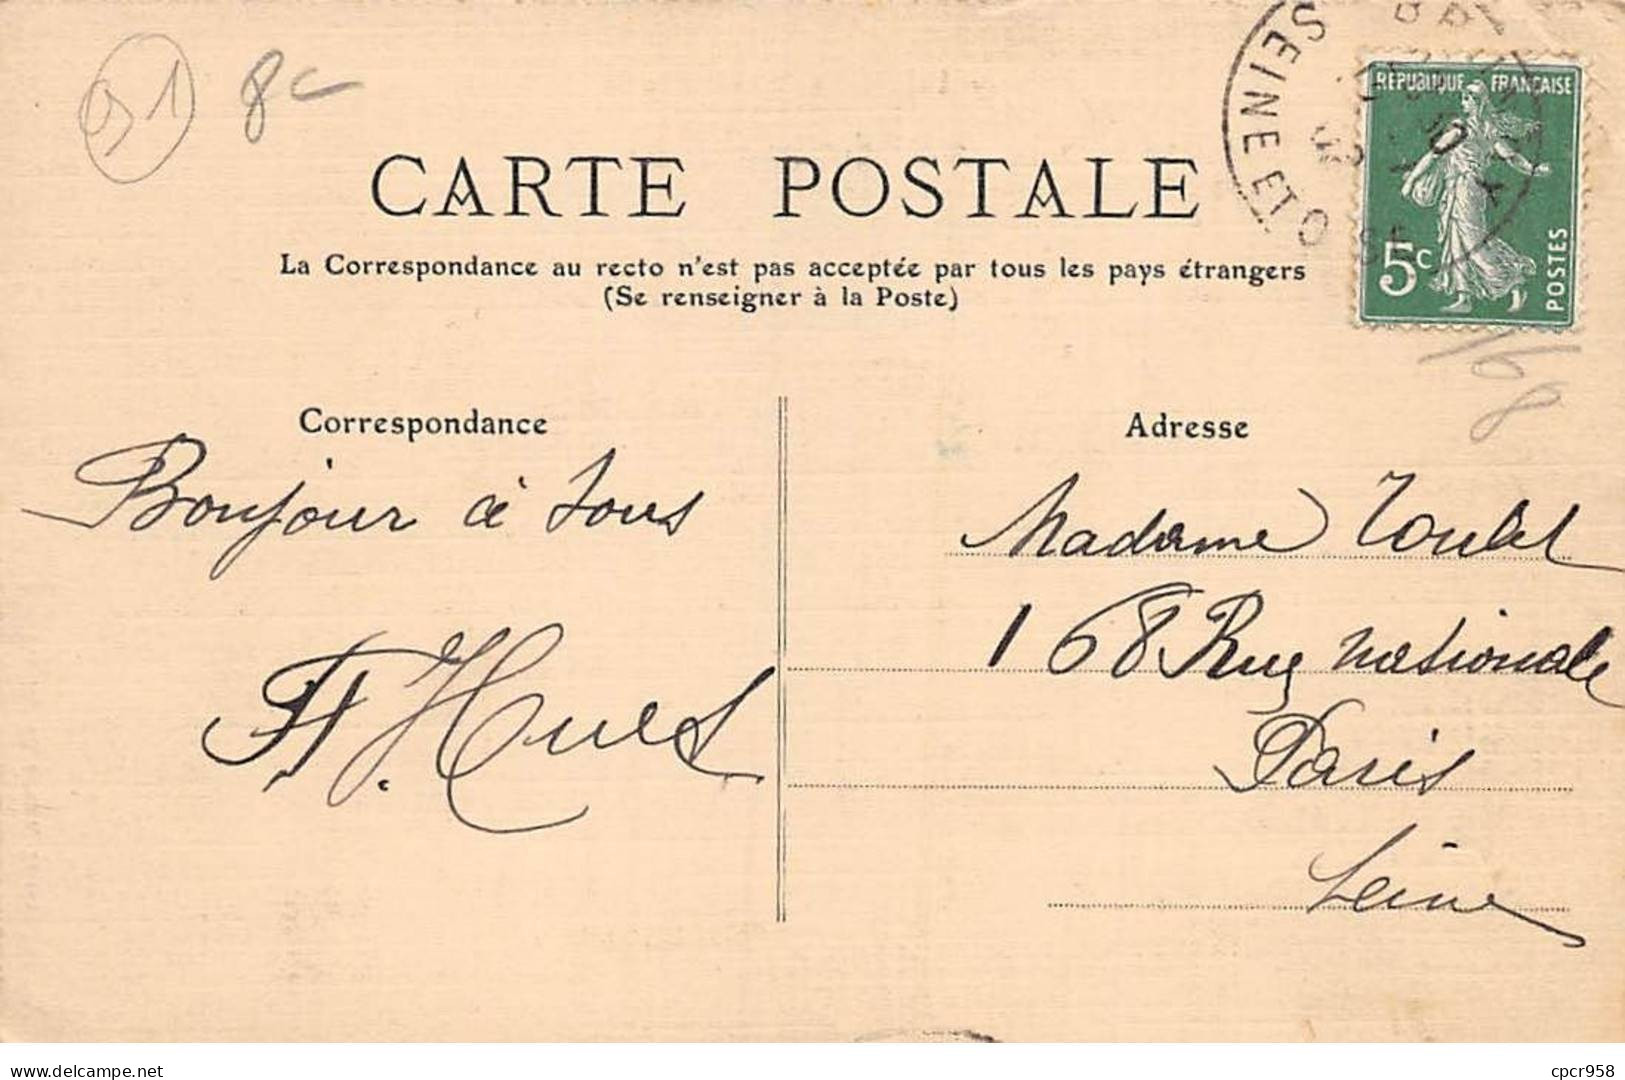 91 8c
SEINE ET OISE
RÉPUBLIQUE FRANÇAISE
5c POSTES
CARTE POSTALE
La Correspondance au recto n'est pas acceptée par tous les pays étrangers
(Se renseigner à la Poste)
168
Correspondance
Bonjour à tous
Huet
Adresse
Madame Toulet
168 Rue nationale
Paris
Seine
www.delcampe.net
cpcr958